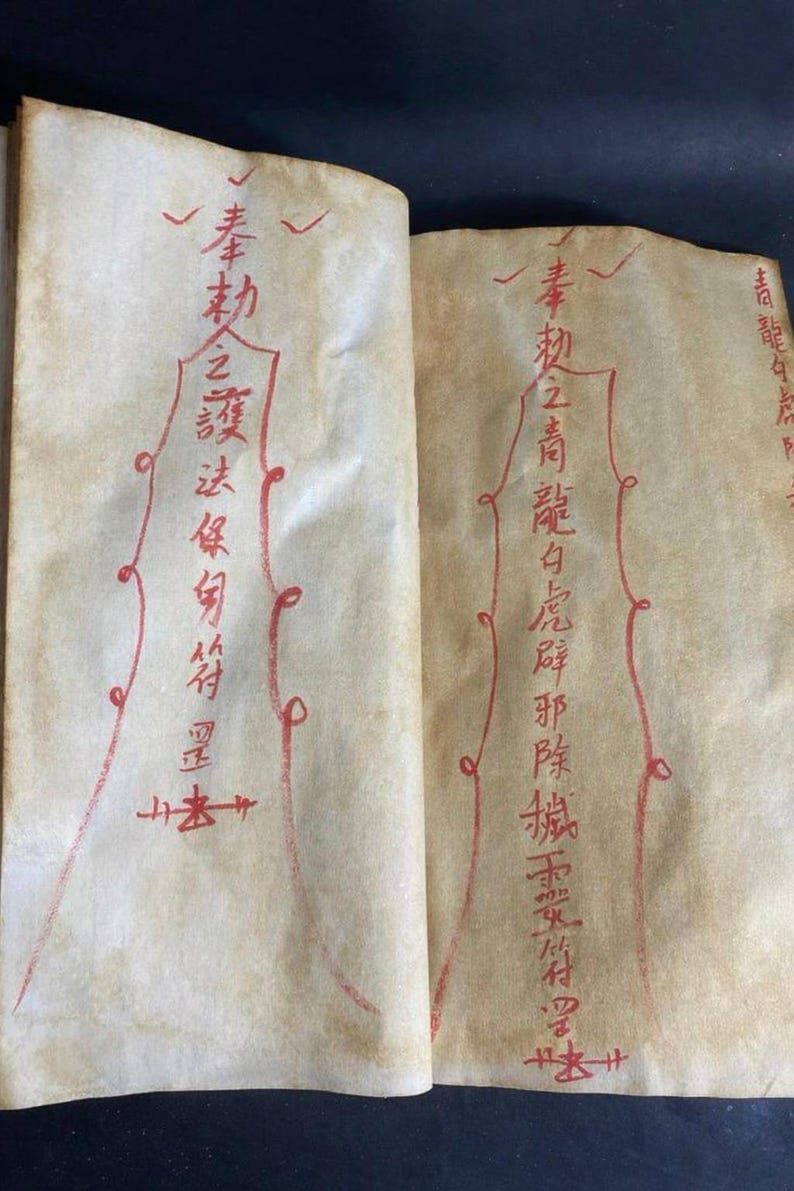 青龍白虎
奉勅之青龍白虎辟邪除穢靈符罡
奉勅之護法保身符罡